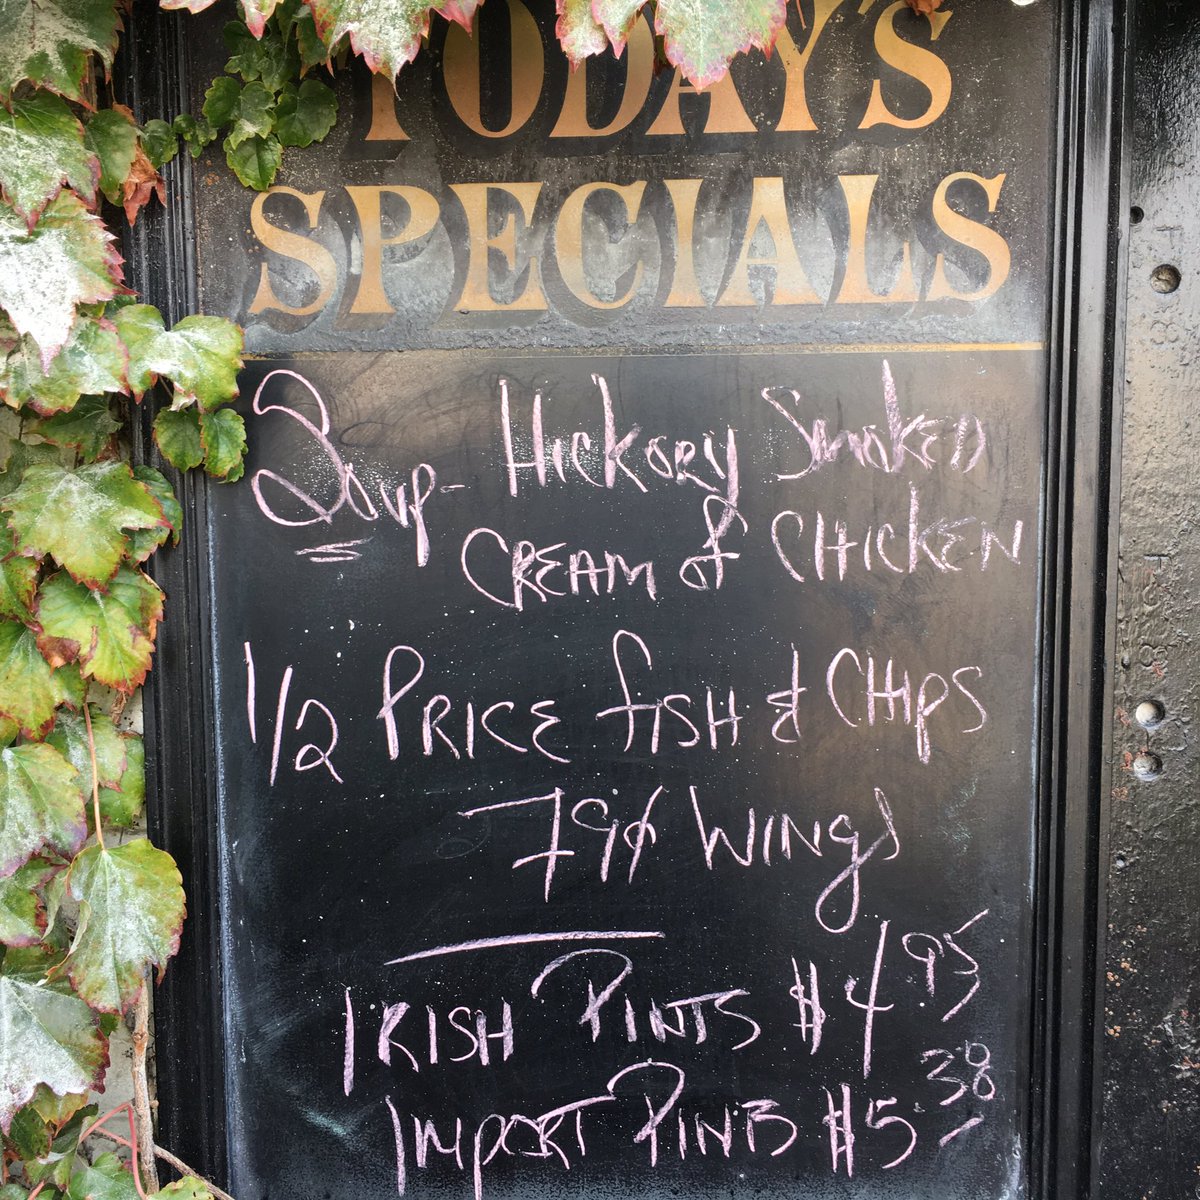 TODAY'S
SPECIALS
Soup - Hickory Smoked
CREAM of CHICKEN
1/2 PRICE FISH & CHIPS
79¢ WINGS
IRISH PINTS $4.95
IMPORT PINTS $5.38